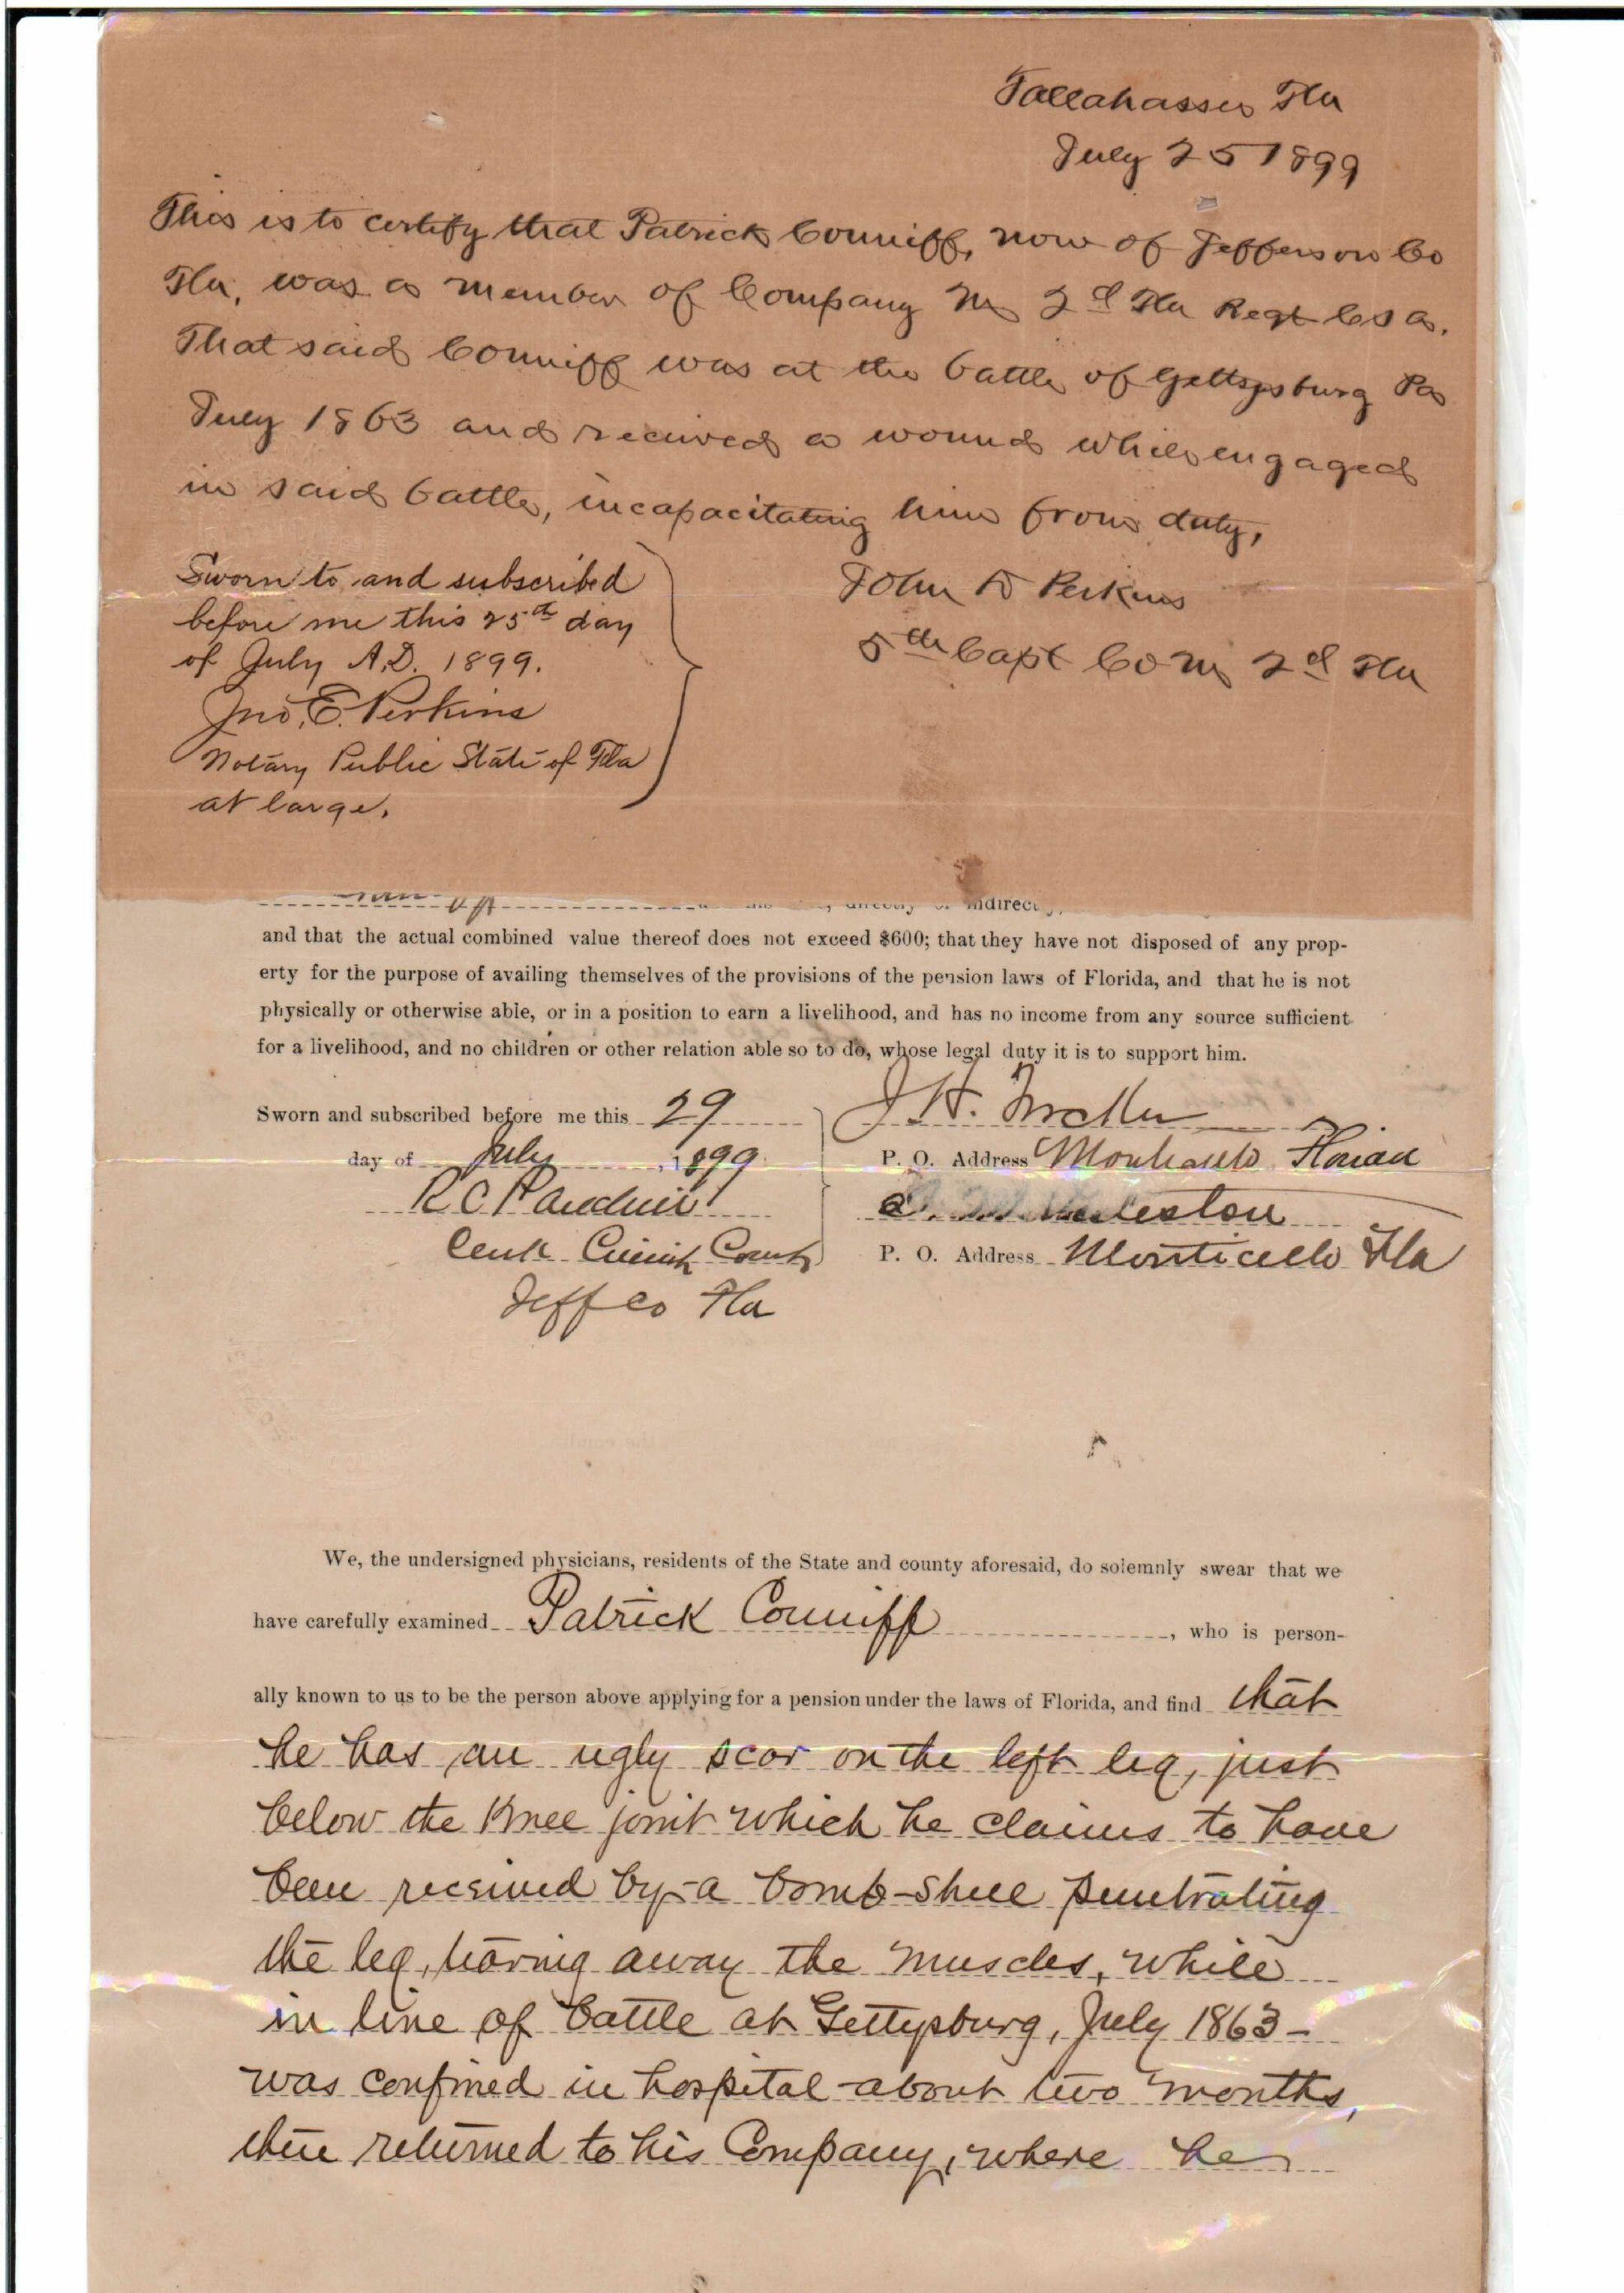 Tallahassee Fla
July 25 1899
This is to certify that Patrick Conniff, now of Jefferson Co
Fla, was a member of Company M 2d Fla Regt C S A.
That said Conniff was at the battle of Gettysburg Pa
July 1863 and received a wound while engaged
in said battle, incapacitating him from duty,
Sworn to and subscribed
before me this 25th day
of July A.D. 1899.
Jno. E. Perkins
Notary Public State of Fla
at large.
John D Perkins
5th Capt Co M 2d Fla
directly or indirectly,
and that the actual combined value thereof does not exceed $600; that they have not disposed of any prop-
erty for the purpose of availing themselves of the provisions of the pension laws of Florida, and that he is not
physically or otherwise able, or in a position to earn a livelihood, and has no income from any source sufficient
for a livelihood, and no children or other relation able so to do, whose legal duty it is to support him.
Sworn and subscribed before me this 29
day of July, 1899
R C
Clerk Circuit Court
Jeff co Fla
J H.
P. O. Address Monticello Florida
P. O. Address Monticello Fla
We, the undersigned physicians, residents of the State and county aforesaid, do solemnly swear that we
have carefully examined Patrick Conniff, who is person-
ally known to us to be the person above applying for a pension under the laws of Florida, and find that
he has an ugly scar on the left leg, just
below the Knee joint which he claims to have
been received by a bomb-shell penetrating
the leg, tearing away the muscles, while
in line of battle at Gettysburg, July 1863 -
was confined in hospital about two months,
then returned to his Company, where he